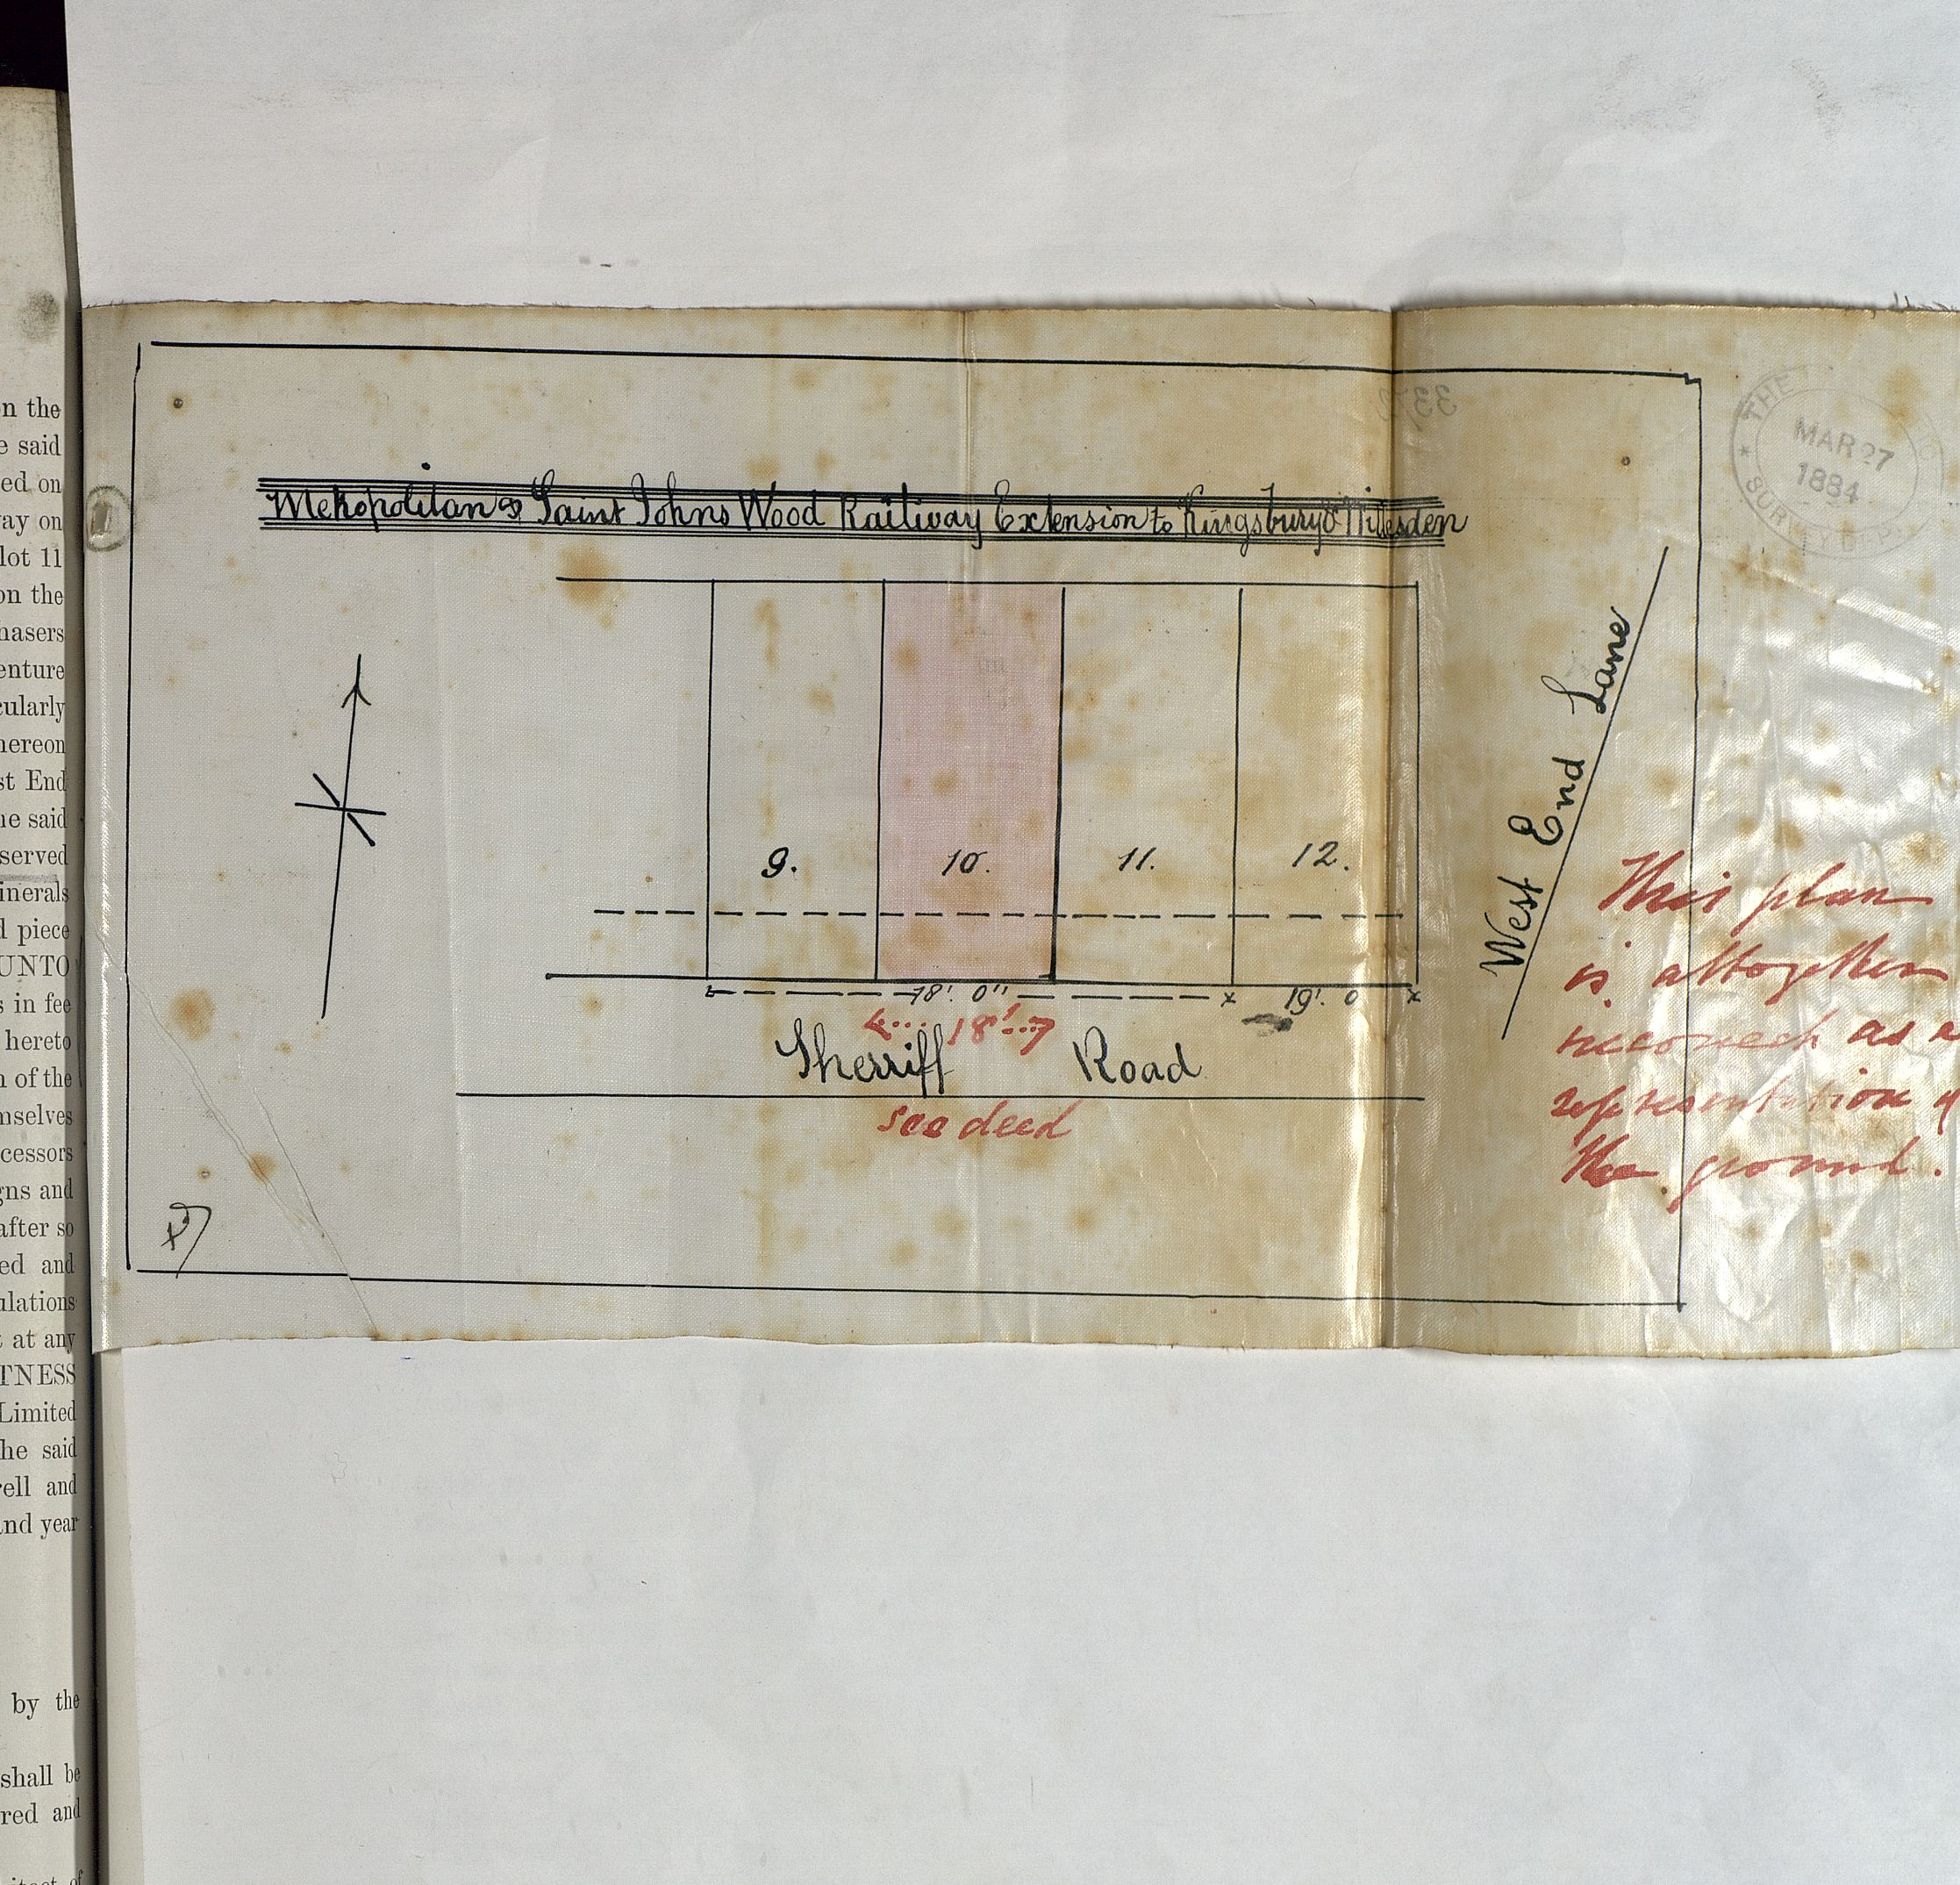 on the
e said
ed on
ay on
lot 11
on the
hasers
enture
cularly
hereon
st End
he said
served
inerals
d piece
UNTO
s in fee
hereto
n of the
mselves
cessors
gns and
after so
ed and
ulations
t at any
TNESS
Limited
he said
rell and
and year
by the
shall be
red and
itect of
Metropolitan & Saint Johns Wood Railway Extension to Kingsbury & Willesden
9. 10. 11. 12.
18'. 0" 19'. 0
18'
Sherriff Road
see deed
West End Lane
THE
MAR 27
1884
SURVEY DEPT
This plan
is altogether
incorrect as a
representation of
the ground.